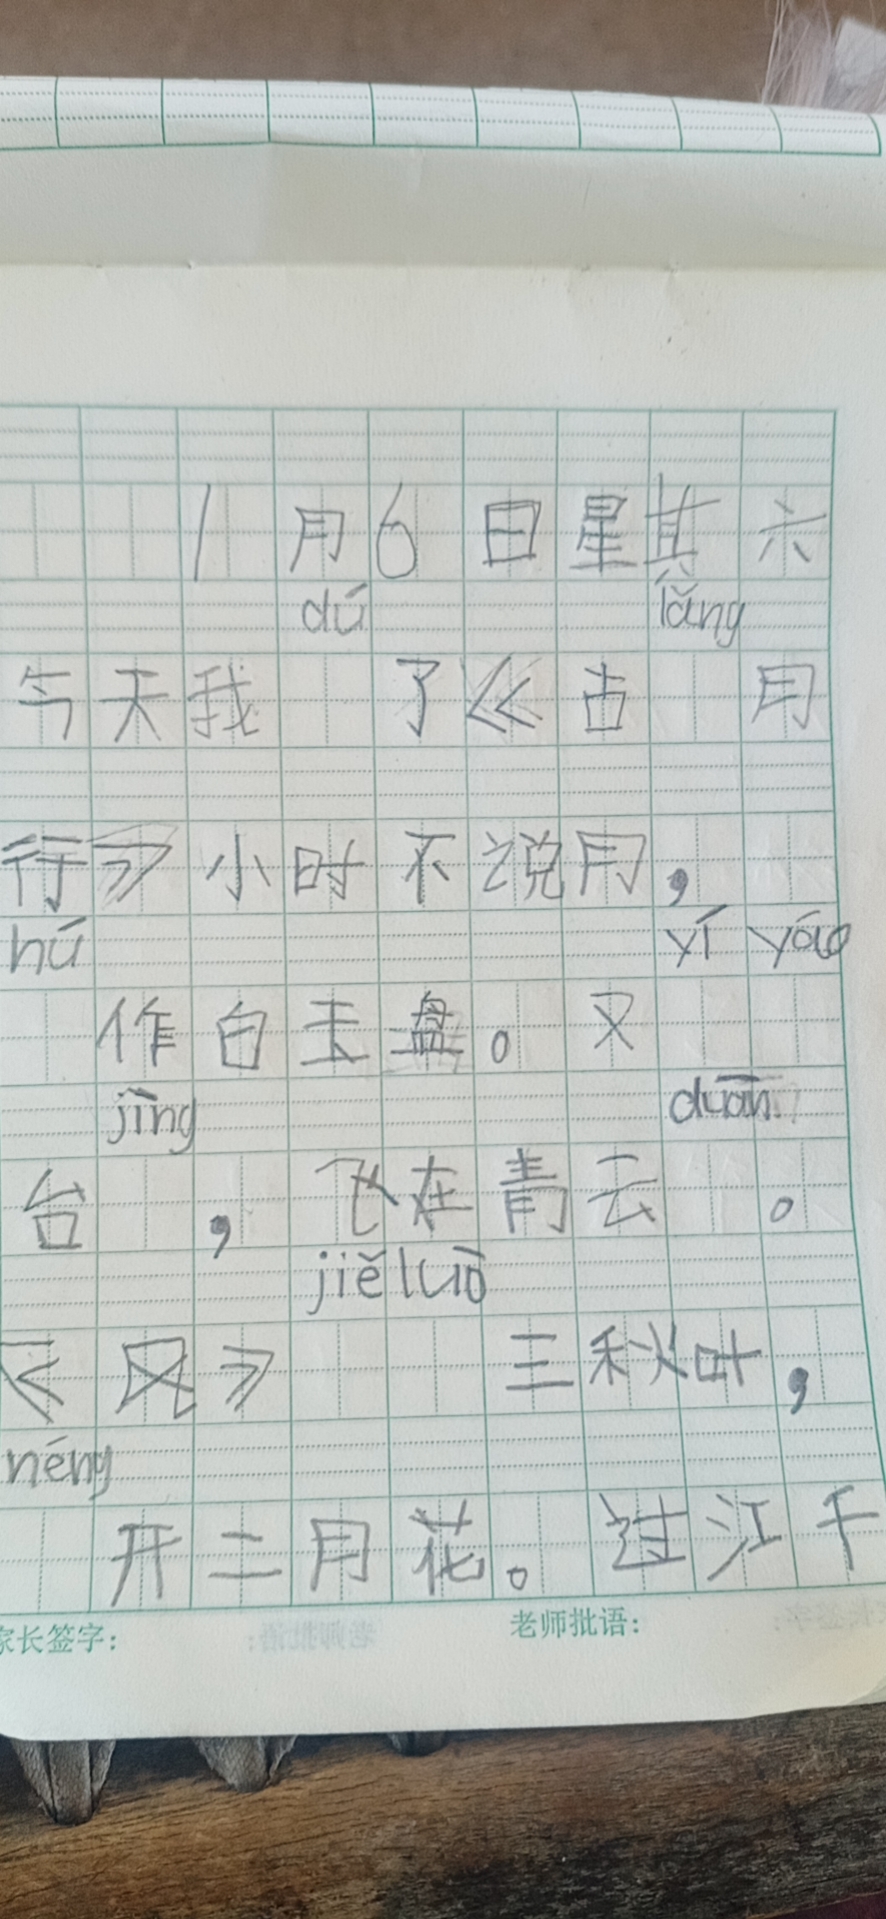 1月6日星其六
dú lǎng
今天我 了《古 月
行》小时不说月，
hú yí yáo
作白玉盘。又
jìng duān
台 ，飞在青云 。
jiě luò
《风》 三秋叶，
néng
开二月花。过江千
家长签字： 老师批语：